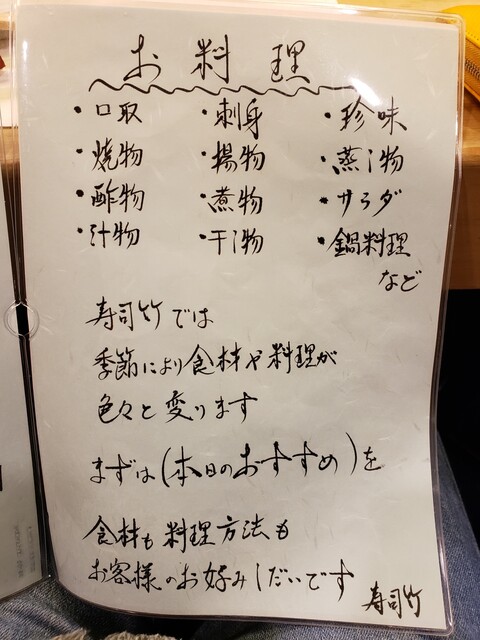 お料理
・口取 ・刺身 ・珍味
・焼物 ・揚物 ・蒸し物
・酢物 ・煮物 ・サラダ
・汁物 ・干し物 ・鍋料理
など
寿司竹では
季節により食材や料理が
色々と変ります
まずは(本日のおすすめ)を
食材も料理方法も
お客様のお好みしだいです
寿司竹